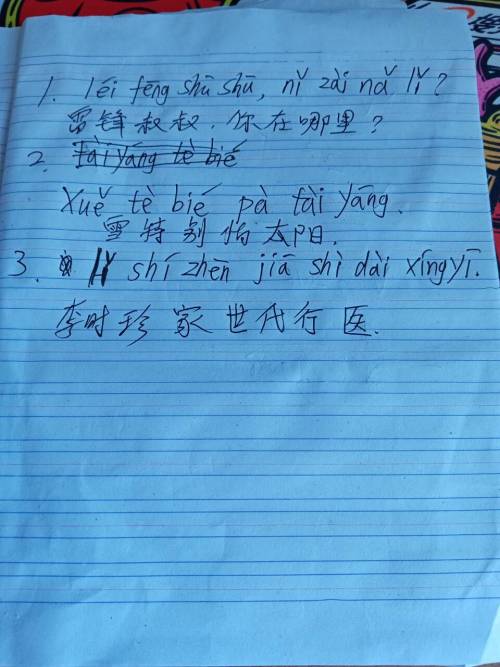 1. léi fēng shū shū, nǐ zài nǎ lǐ?
雷锋叔叔,你在哪里?
2. tài yáng tè bié
xuě tè bié pà tài yáng.
雪特别怕太阳.
3. lǐ shí zhēn jiā shì dài xíng yī.
李时珍家世代行医.